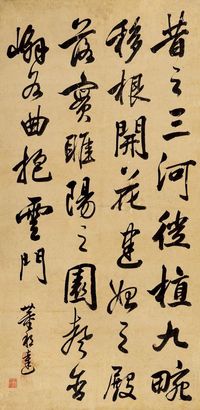 昔之三河徙植九畹
移根開花建始之殿
落實睢陽之園聲含
嶰谷曲抱雲門
董邦達